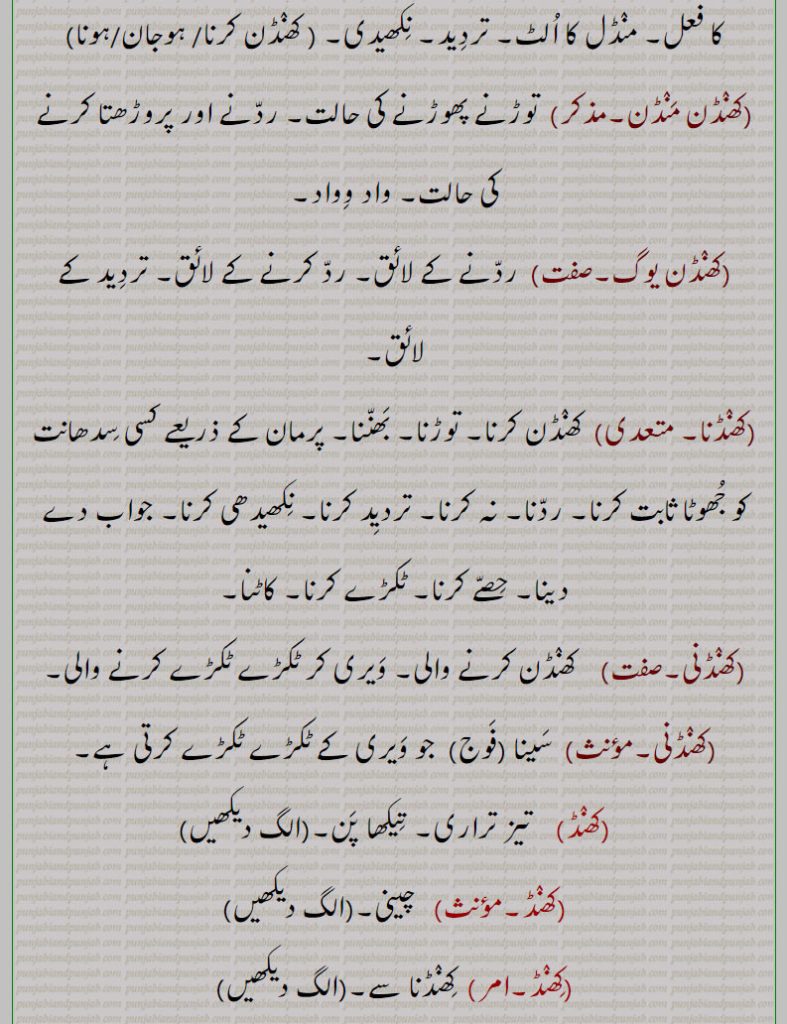 کا فعل۔ منْڈل کا اُلٹ۔ تردِید۔ نِکھیدی۔ ( کھنْڈن کرنا/ ہوجان/ہونا)
(کھنْڈن مَنْڈن۔مذکر) توڑنے پھوڑنے کی حالت۔ ردّنے اور پروڑھتا کرنے
کی حالت۔ واد وِواد۔
(کھنْڈن یوگ۔صفت) ردّنے کے لائق۔ ردّ کرنے کے لائق۔ تردِید کے
لائق۔
(کھنْڈنا۔ متعدی) کھنْڈن کرنا۔ توڑنا۔ بَھنّنا۔ پرمان کے ذریعے کسی سِدھانت
کو جُھوٹا ثابت کرنا۔ ردّنا۔ نہ کرنا۔ تردیِد کرنا۔ نِکھیدھی کرنا۔ جواب دے
دینا۔ حِصّے کرنا۔ ٹکڑے کرنا۔ کاٹنا۔
(کھنْڈنی۔صفت) کھنْڈن کرنے والی۔ وَیری کر ٹکڑے ٹکڑے کرنے والی۔
(کھنْڈنی۔مؤنث) سَینا (فَوج) جو وَیری کے ٹکڑے ٹکڑے کرتی ہے۔
(کھنْڈ) تیز تراری۔ تِیکھا پَن۔(الگ دیکھیں)
(کھنْڈ۔مؤنث) چینی۔(الگ دیکھیں)
(کِھنْڈ۔امر) کِھنْڈنا سے۔(الگ دیکھیں)